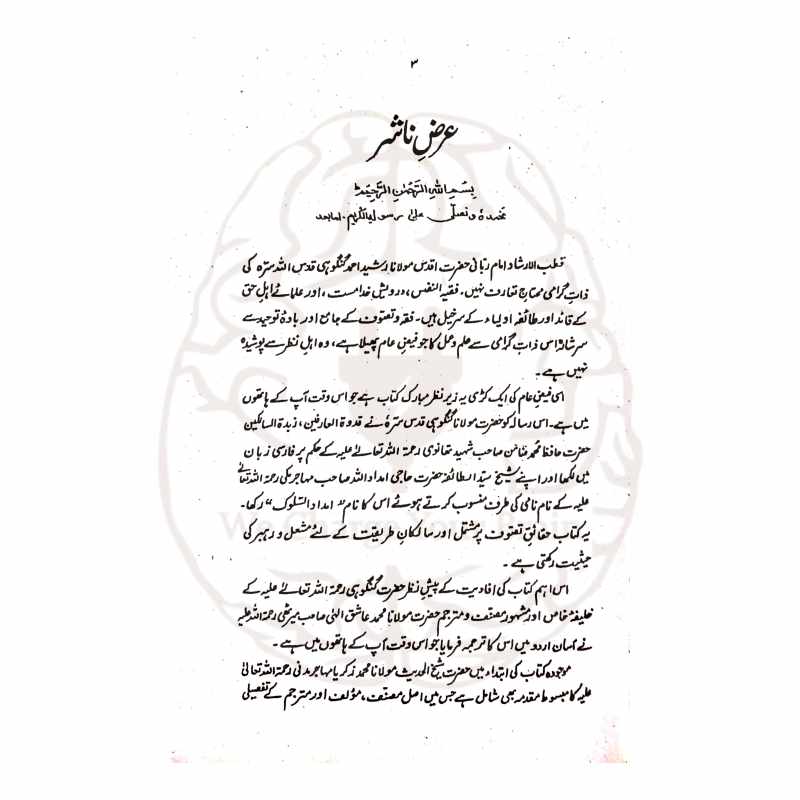 ۳
عرضِ ناشر
بِسْمِ اللهِ الرَّحْمٰنِ الرَّحِيْمِ
نحمدهٗ ونصلّی علیٰ رسولہِ الکریم۔ امابعد
قطب الارشاد امام ربانی حضرت اقدس مولانا رشید احمد گنگوہی قدس اللہ سترہ کی
ذاتِ گرامی محتاجِ تعارف نہیں۔ فقیہ النفس، درویش خدامست، اور علمائے اہلِ حق
کے قائد اور طائفہ اولیاء کے سرخیل ہیں۔ فقہ و تصوف کے جامع اور بادۂ توحید سے
سرشار اس ذاتِ گرامی سے علم و عمل کا جو فیضِ عام پھیلا ہے، وہ اہلِ نظر سے پوشیدہ
نہیں ہے۔
اسی فیضِ عام کی ایک کڑی یہ زیر نظر مبارک کتاب ہے جو اس وقت آپ کے ہاتھوں
میں ہے۔ اس رسالہ کو حضرت مولانا گنگوہی قدس سترہٗ نے قدوۃ العارفین، زبدۃ السالکین
حضرت حافظ محمد ضامن صاحب شہید تھانوی رحمۃ اللہ تعالےٰ علیہ کے حکم پر فارسی زبان
میں لکھا اور اپنے شیخ سیّد الطائفہ حضرت حاجی امداد اللہ صاحب مہاجر مکی رحمۃ اللہ تعالیٰ
علیہ کے نام نامی کی طرف منسوب کرتے ہوئے اس کا نام ”امداد السّلوک“ رکھا۔
یہ کتاب حقائقِ تصوف پر مشتمل اور سالکانِ طریقت کے لئے مشعل و رہبر کی
حیثیت رکھتی ہے۔
We Change Your Brain
اس اہم کتاب کی افادیت کے پیش نظر حضرت گنگوہی رحمۃ اللہ تعالےٰ علیہ کے
خلیفہ خاص اور مشہور مصنف و مترجم حضرت مولانا محمد عاشق الٰہی صاحب میرٹھی رحمۃ اللہ علیہ
نے آسان اردو میں اس کا ترجمہ فرمایا جو اس وقت آپ کے ہاتھوں میں ہے۔
موجودہ کتاب کی ابتداء میں حضرت شیخ الحدیث مولانا محمد زکریا مہاجر مدنی رحمۃ اللہ تعالیٰ
علیہ کا مبسوط مقدمہ بھی شامل ہے جس میں اصل مصنف، مؤلف اور مترجم کے تفصیلی